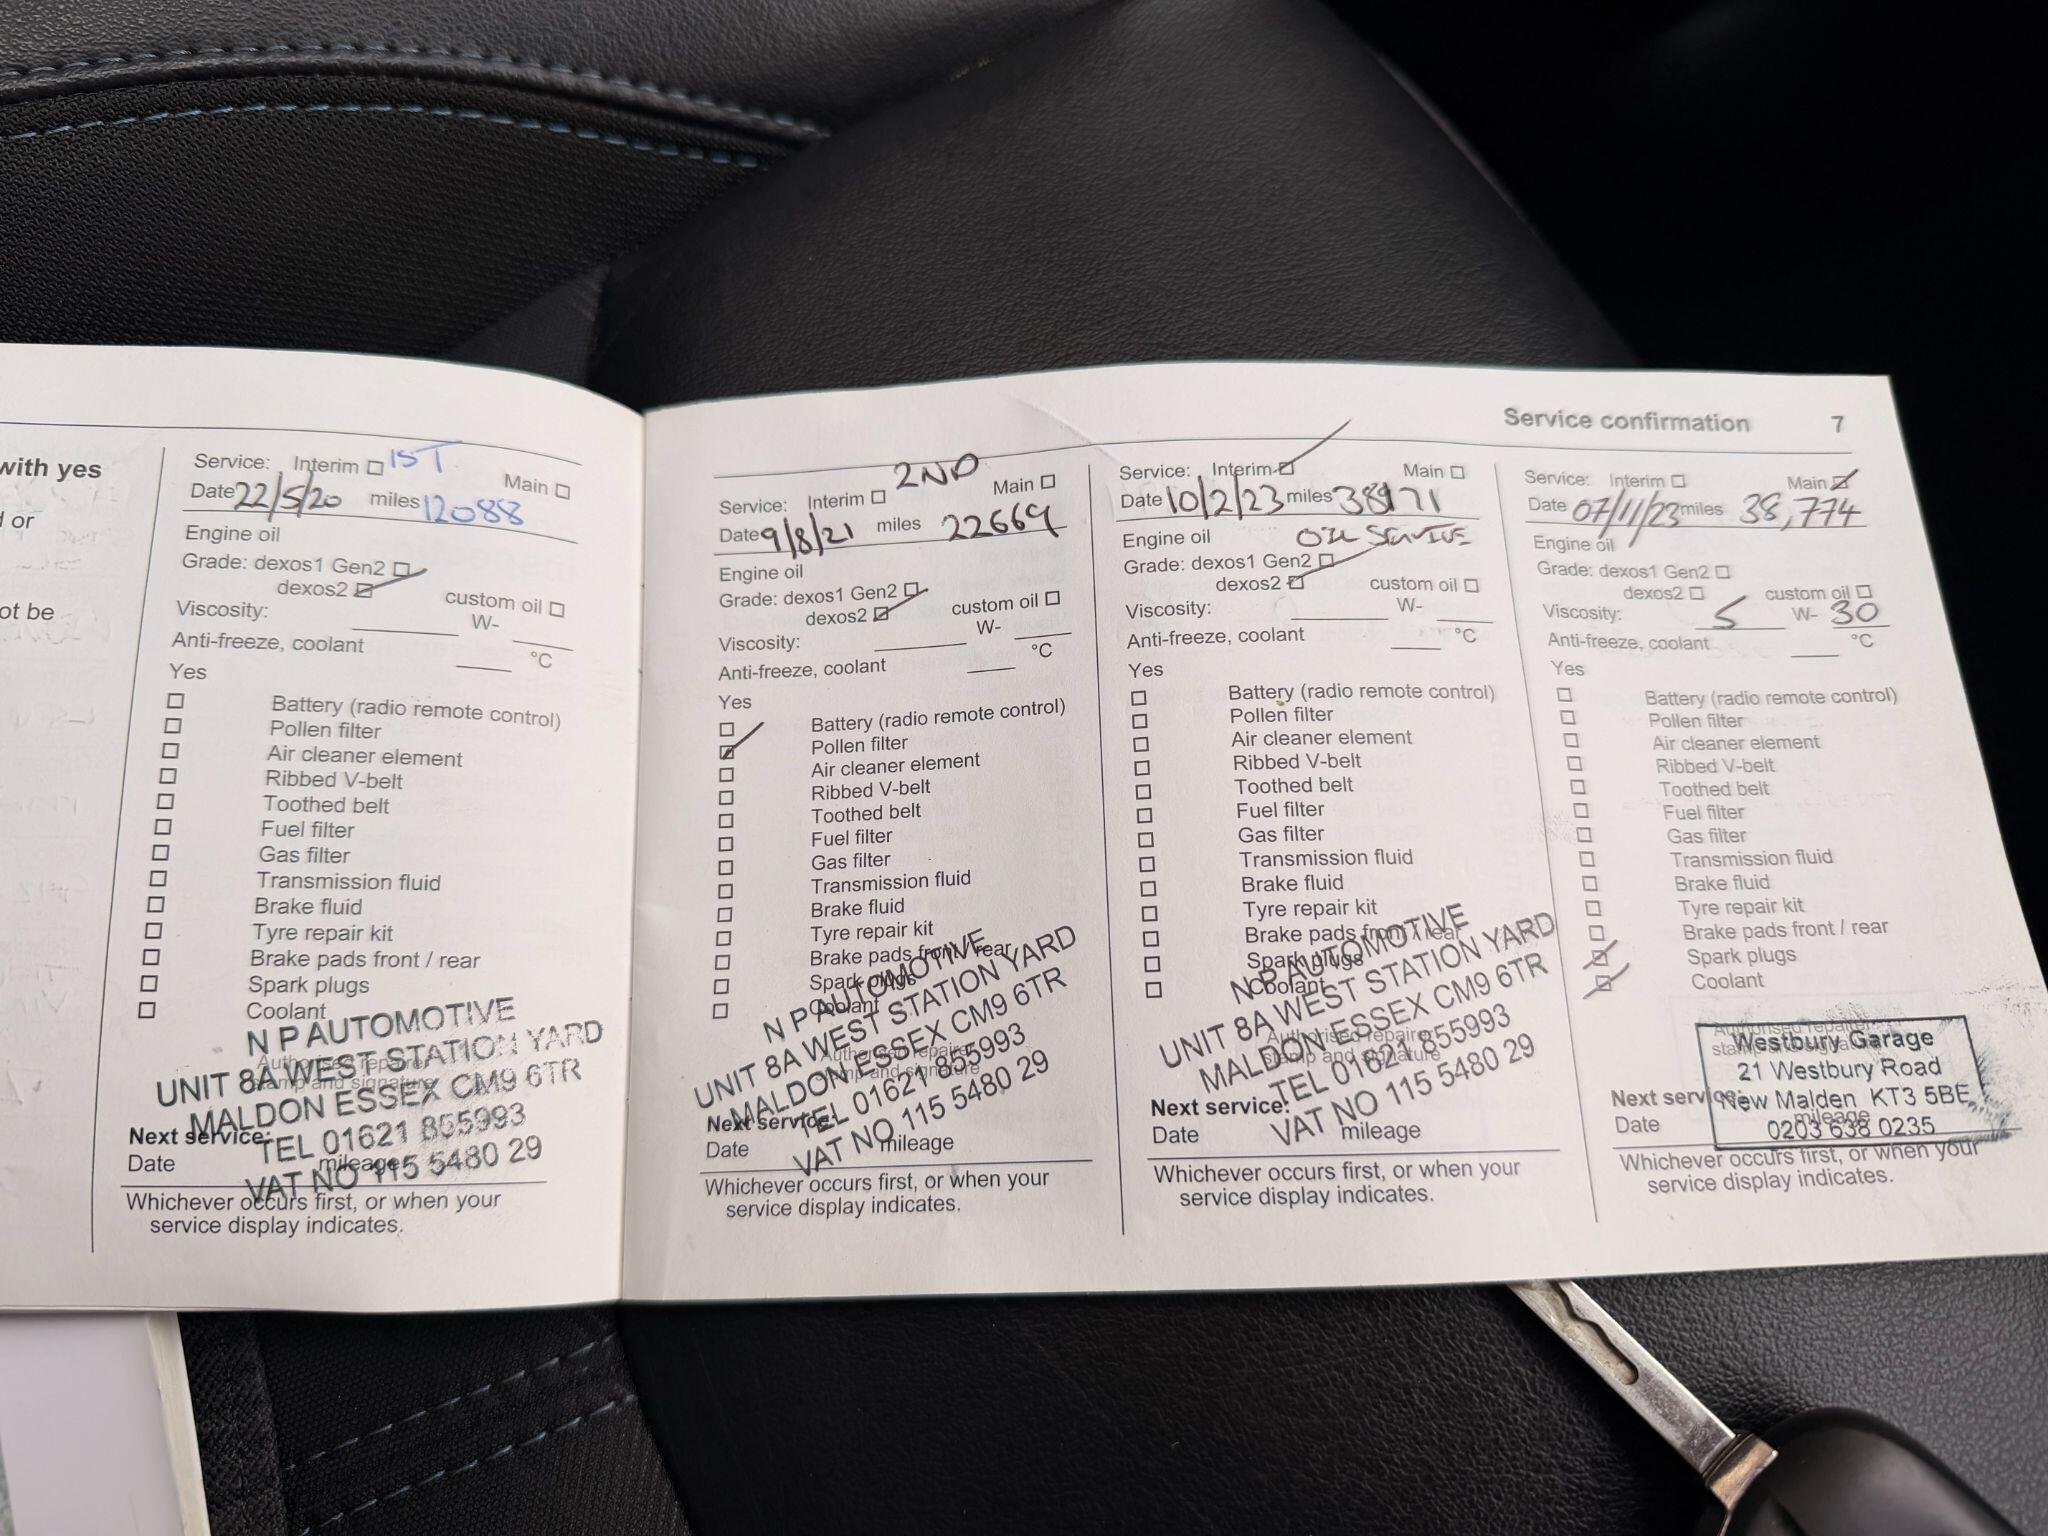 Service confirmation 7
with yes
d or
ot be
Service: Interim ☐ 1ST Main ☐
Date 22/5/20 miles 12088
Engine oil
Grade: dexos1 Gen2 ☐
dexos2 ☑ custom oil ☐
Viscosity: ______ W- ____
Anti-freeze, coolant ____ °C
Yes
☐ Battery (radio remote control)
☐ Pollen filter
☐ Air cleaner element
☐ Ribbed V-belt
☐ Toothed belt
☐ Fuel filter
☐ Gas filter
☐ Transmission fluid
☐ Brake fluid
☐ Tyre repair kit
☐ Brake pads front / rear
☐ Spark plugs
☐ Coolant
N P AUTOMOTIVE
UNIT 8A WEST STATION YARD
MALDON ESSEX CM9 6TR
TEL 01621 855993
VAT NO 115 5480 29
Authorised repairer
stamp and signature
Next service:
Date mileage
Whichever occurs first, or when your
service display indicates.
2ND
Service: Interim ☐ Main ☐
Date 9/8/21 miles 22669
Engine oil
Grade: dexos1 Gen2 ☐
dexos2 ☑ custom oil ☐
Viscosity: ______ W- ____
Anti-freeze, coolant ____ °C
Yes
☐ Battery (radio remote control)
☑ Pollen filter
☐ Air cleaner element
☐ Ribbed V-belt
☐ Toothed belt
☐ Fuel filter
☐ Gas filter
☐ Transmission fluid
☐ Brake fluid
☐ Tyre repair kit
☐ Brake pads front / rear
☐ Spark plugs
☐ Coolant
N P AUTOMOTIVE
UNIT 8A WEST STATION YARD
MALDON ESSEX CM9 6TR
TEL 01621 855993
VAT NO 115 5480 29
Authorised repairer
stamp and signature
Next service:
Date mileage
Whichever occurs first, or when your
service display indicates.
Service: Interim ☑ Main ☐
Date 10/2/23 miles
Engine oil OIL SERVICE
Grade: dexos1 Gen2 ☐
dexos2 ☑ custom oil ☐
Viscosity: ______ W- ____
Anti-freeze, coolant ____ °C
Yes
☐ Battery (radio remote control)
☐ Pollen filter
☐ Air cleaner element
☐ Ribbed V-belt
☐ Toothed belt
☐ Fuel filter
☐ Gas filter
☐ Transmission fluid
☐ Brake fluid
☐ Tyre repair kit
☐ Brake pads front / rear
☐ Spark plugs
☐ Coolant
N P AUTOMOTIVE
UNIT 8A WEST STATION YARD
MALDON ESSEX CM9 6TR
TEL 01621 855993
VAT NO 115 5480 29
Authorised repairer
stamp and signature
Next service:
Date mileage
Whichever occurs first, or when your
service display indicates.
Service: Interim ☐ Main ☑
Date 07/11/23 miles 38,774
Engine oil
Grade: dexos1 Gen2 ☐
dexos2 ☐ custom oil ☐
Viscosity: 5 W- 30
Anti-freeze, coolant ____ °C
Yes
☐ Battery (radio remote control)
☐ Pollen filter
☐ Air cleaner element
☐ Ribbed V-belt
☐ Toothed belt
☐ Fuel filter
☐ Gas filter
☐ Transmission fluid
☐ Brake fluid
☐ Tyre repair kit
☐ Brake pads front / rear
☑ Spark plugs
☑ Coolant
Authorised repairer
stamp and signature
Westbury Garage
21 Westbury Road
New Malden KT3 5BE
0203 638 0235
Next service:
Date mileage
Whichever occurs first, or when your
service display indicates.